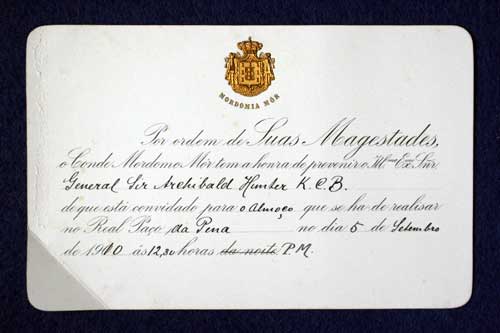 MORDOMIA MÓR
Por ordem de Suas Magestades,
o Conde Mordomo Mór tem a honra de prevenir o Illmo Ex. Snr.
General Sir Archibald Hunter K.C.B.
de que está convidado para o Almoço que se ha de realisar
no Real Paço da Pena no dia 5 de Setembro
de 1910 ás 12,30 horas da noite P.M.